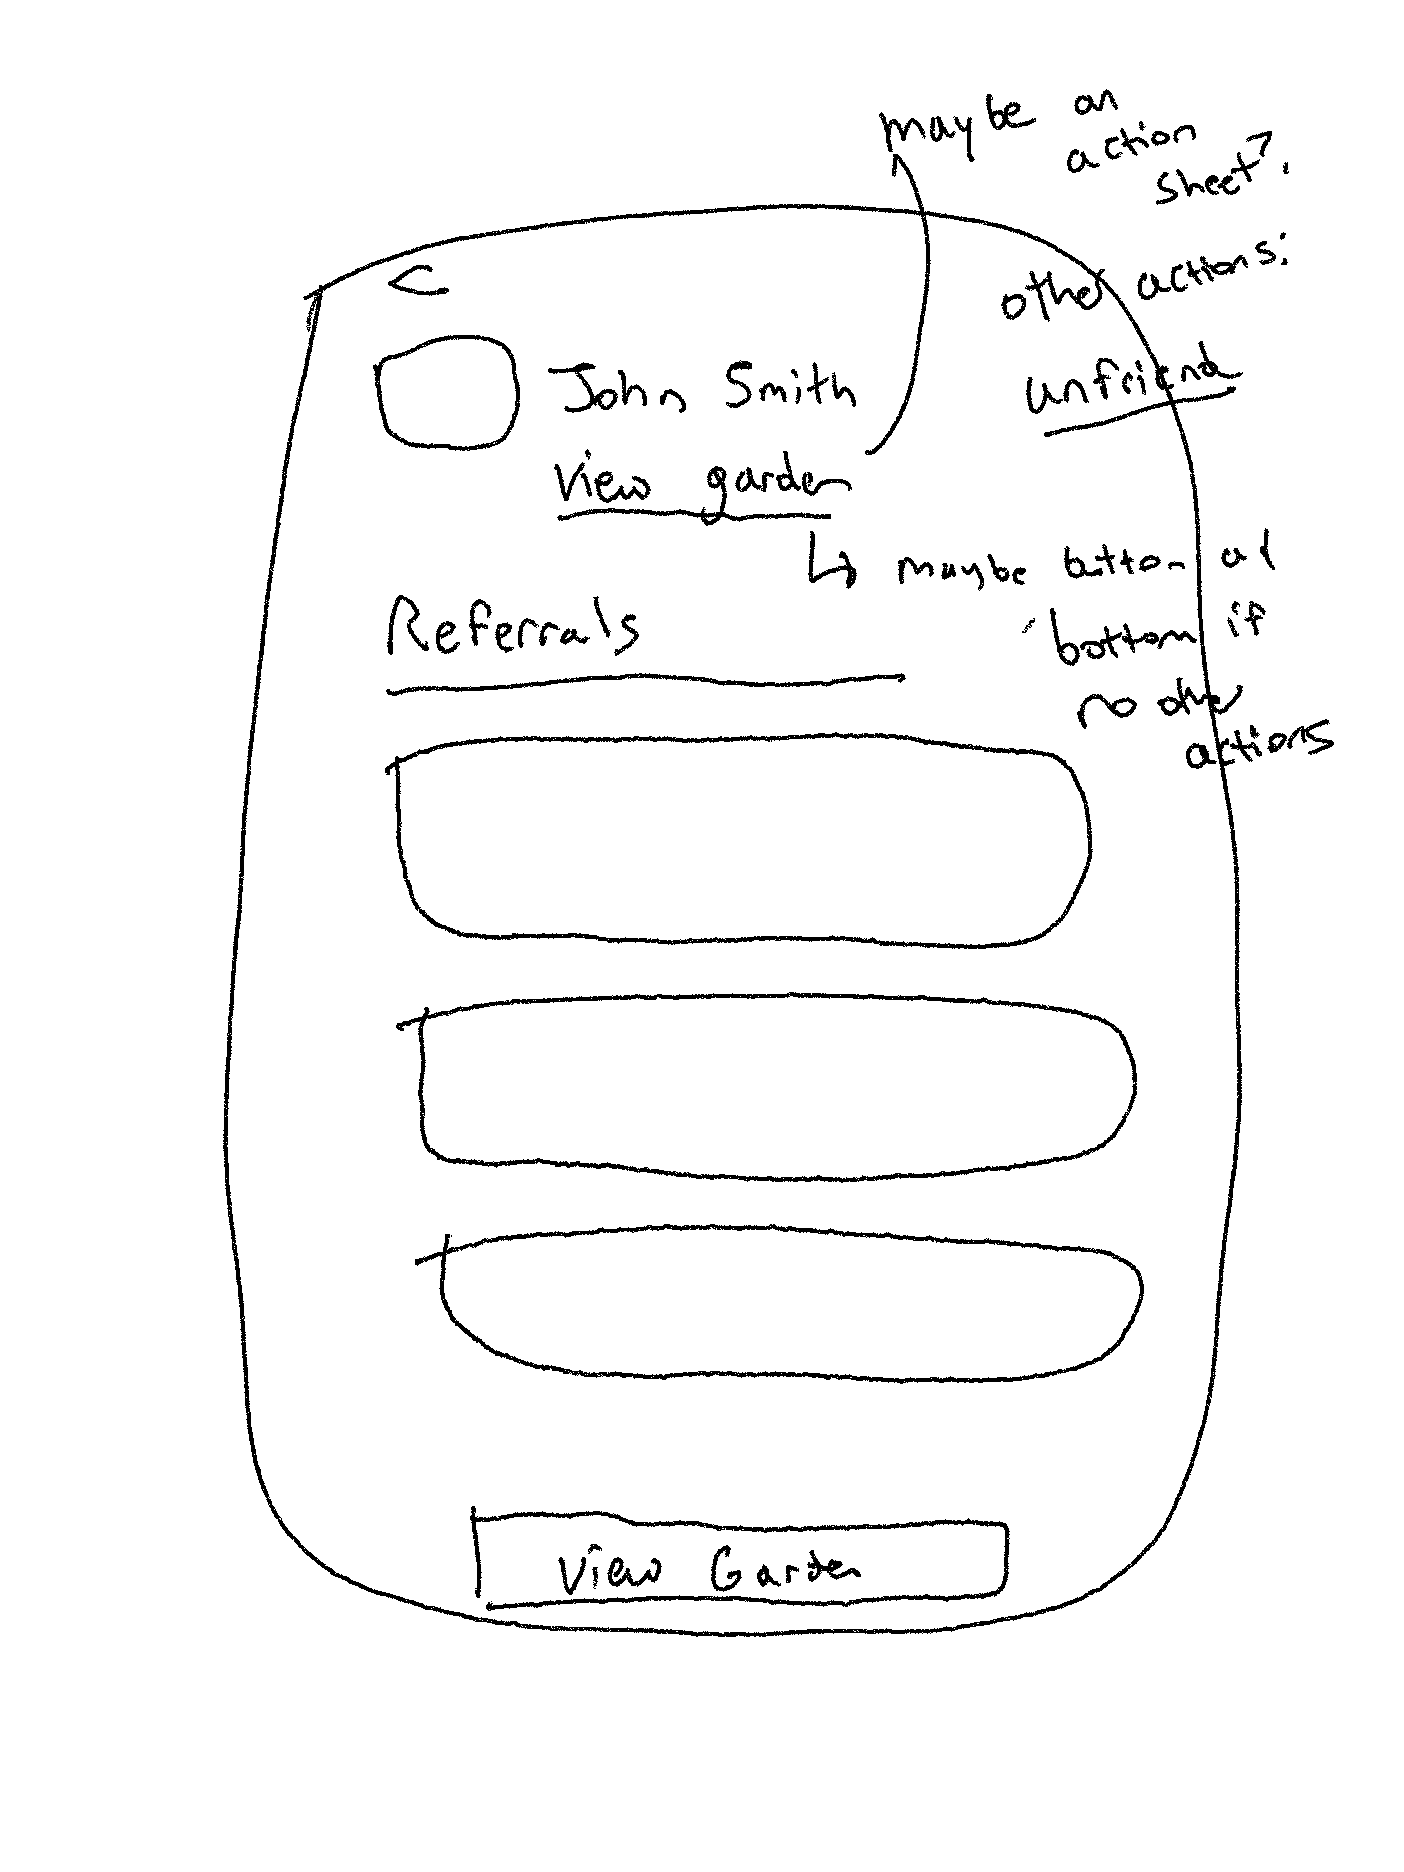 maybe an
action
sheet?
<
other actions:
John Smith
unfriend
View garden
↳ maybe button at
bottom if
no other
actions
Referrals
View Garden